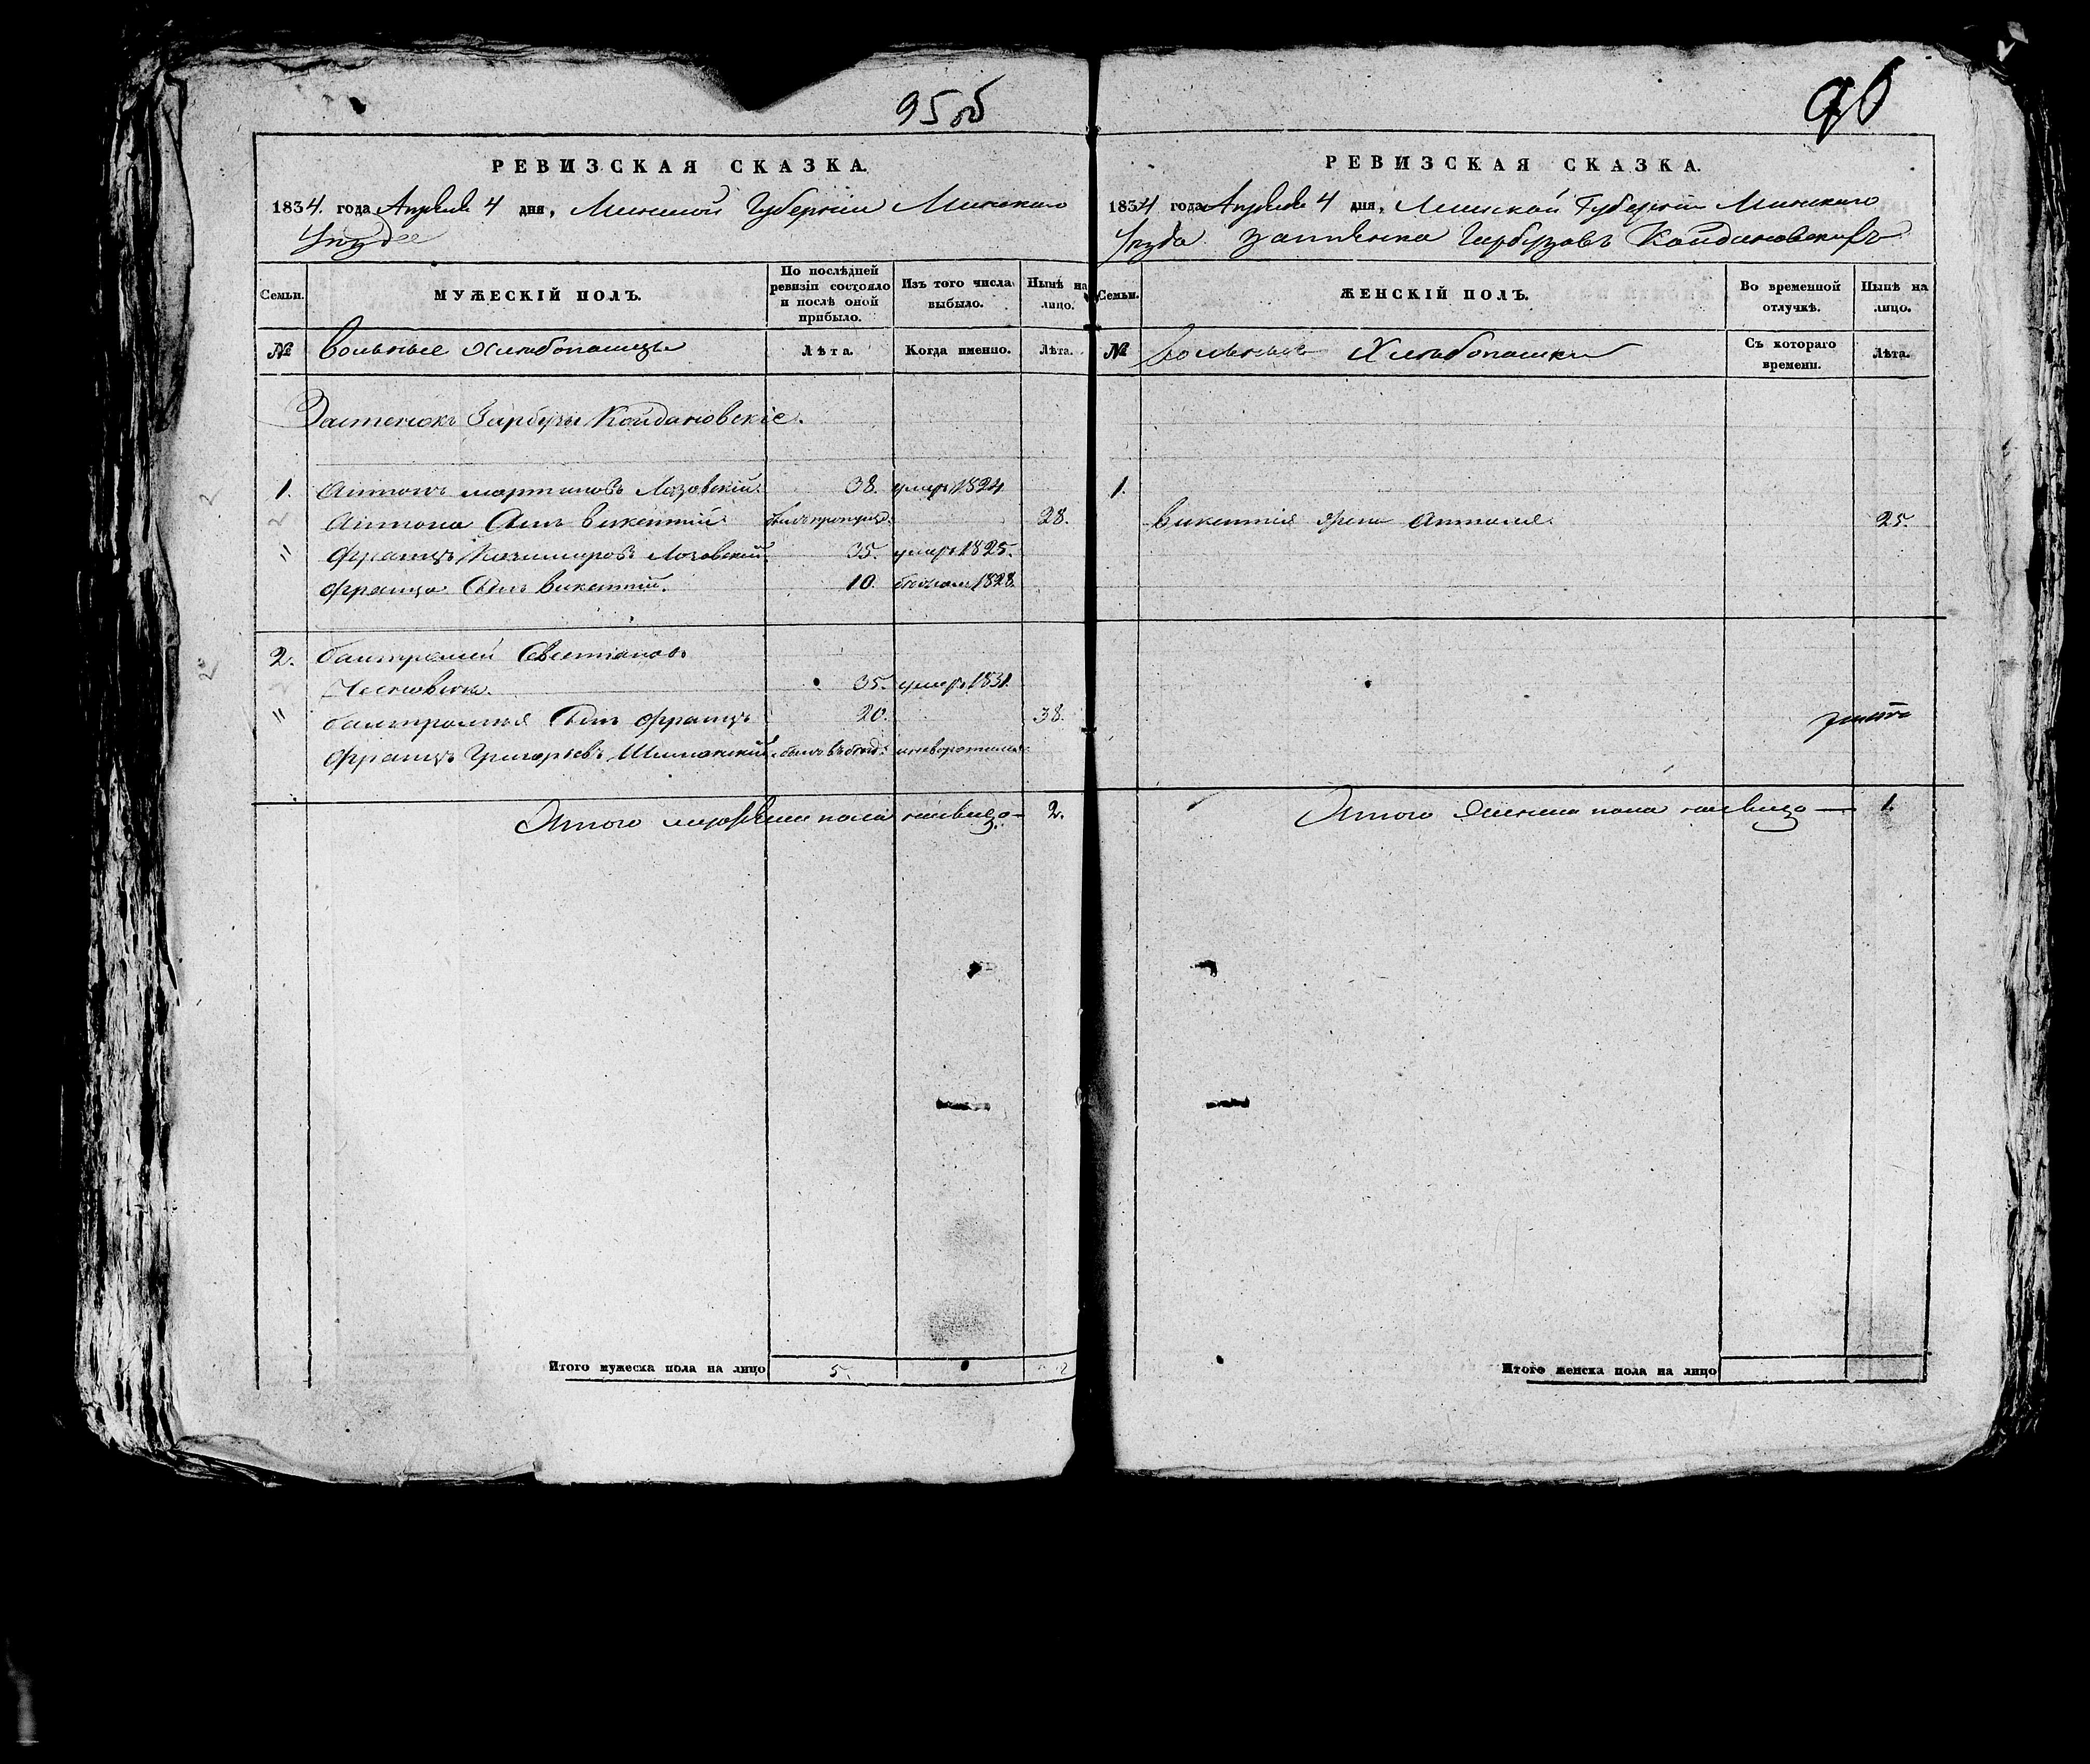 95об
РЕВИЗСКАЯ СКАЗКА.
1834. года Апреля 4 дня, Минской Губернии Минского
Уезда
Семьи.
МУЖЕСКІЙ ПОЛЪ.
По послѣдней ревизіи состояло и послѣ оной прибыло.
Изъ того числа выбыло.
Нынѣ на лицо.
№ Вольные Хлебопашцы
Лѣта. Когда именно. Лѣта.
Застенокъ Гарбузы Койдановскіе.
1. Антонъ Мартиновъ Лозовскій. 38. умеръ 1824
Антона Сынъ Викентій 28.
" Францъ Казимировъ Лозовскій. 35. умеръ 1825.
Франца Сынъ Викентій. 10. 1828.
2. Балтромей Севестіановъ
35. умеръ 1831.
" Балтромея Сынъ Францъ 20. 38.
Францъ Григорьевъ
Итого мужеска пола налицо 2.
Итого мужеска пола на лицо 5. 2
96
РЕВИЗСКАЯ СКАЗКА.
1834 года Апреля 4 дня, Минской Губерніи Минского
Уезда застенка Гарбузовъ Койдановскихъ
Семьи.
ЖЕНСКІЙ ПОЛЪ.
Во временной отлучкѣ.
Нынѣ на лицо.
№ Вольные Хлебопашки
Съ котораго времени. Лѣта.
1.
Викентія жена Анталя 25.
Итого женска пола налицо — 1.
Итого женска пола на лицо